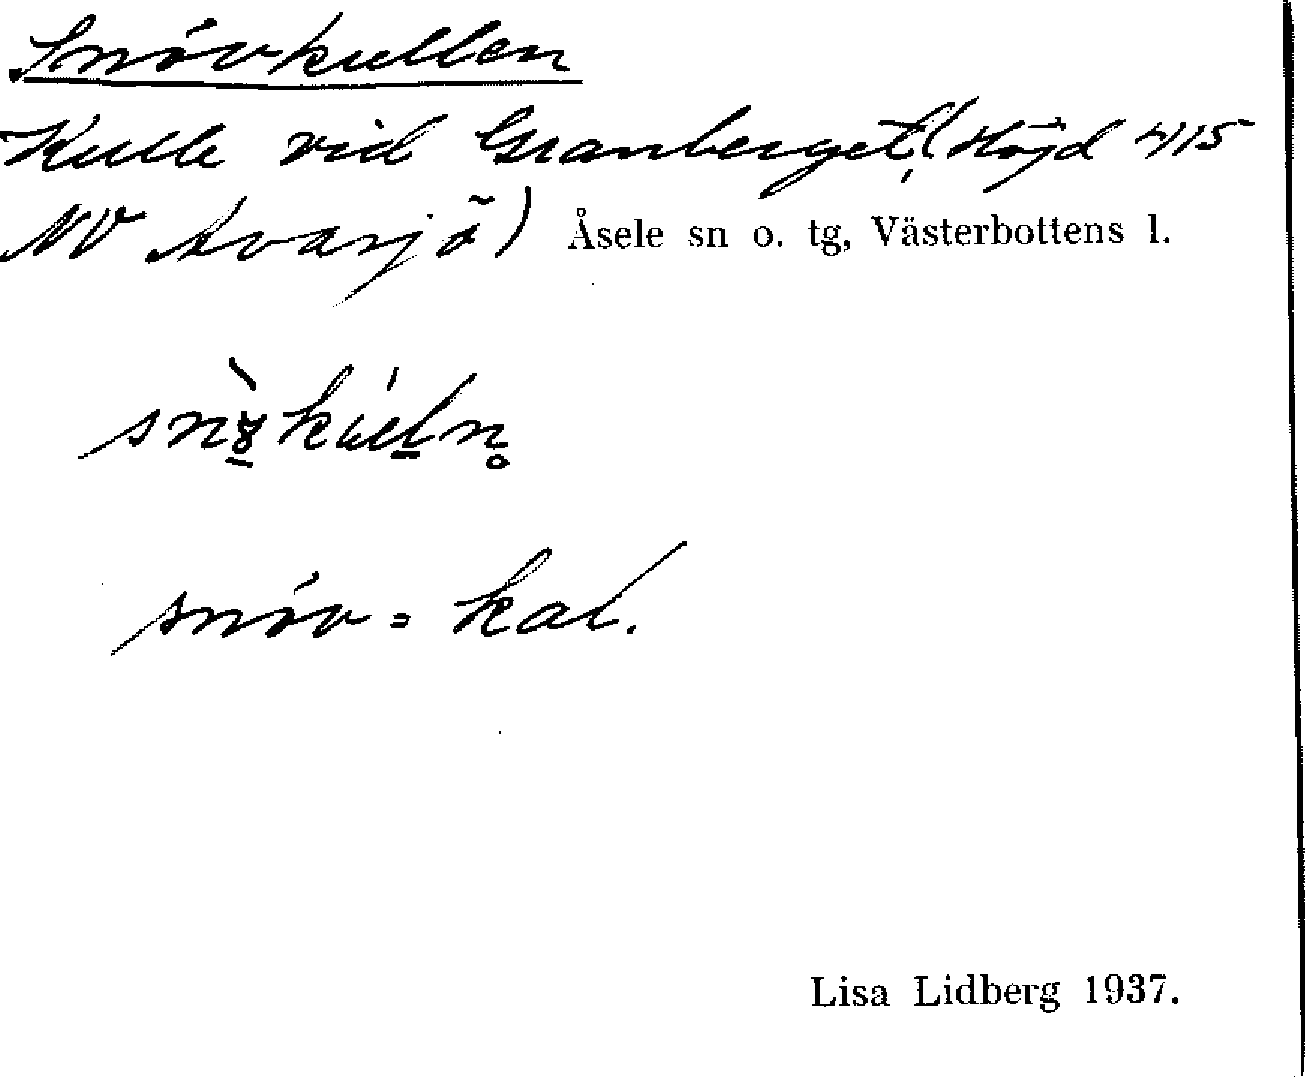 Snövkullen
Kulle vid Granberget, (Höjd 415
NV Avasjö) Åsele sn o. tg, Västerbottens l.
snöv = kal.
Lisa Lidberg 1937.